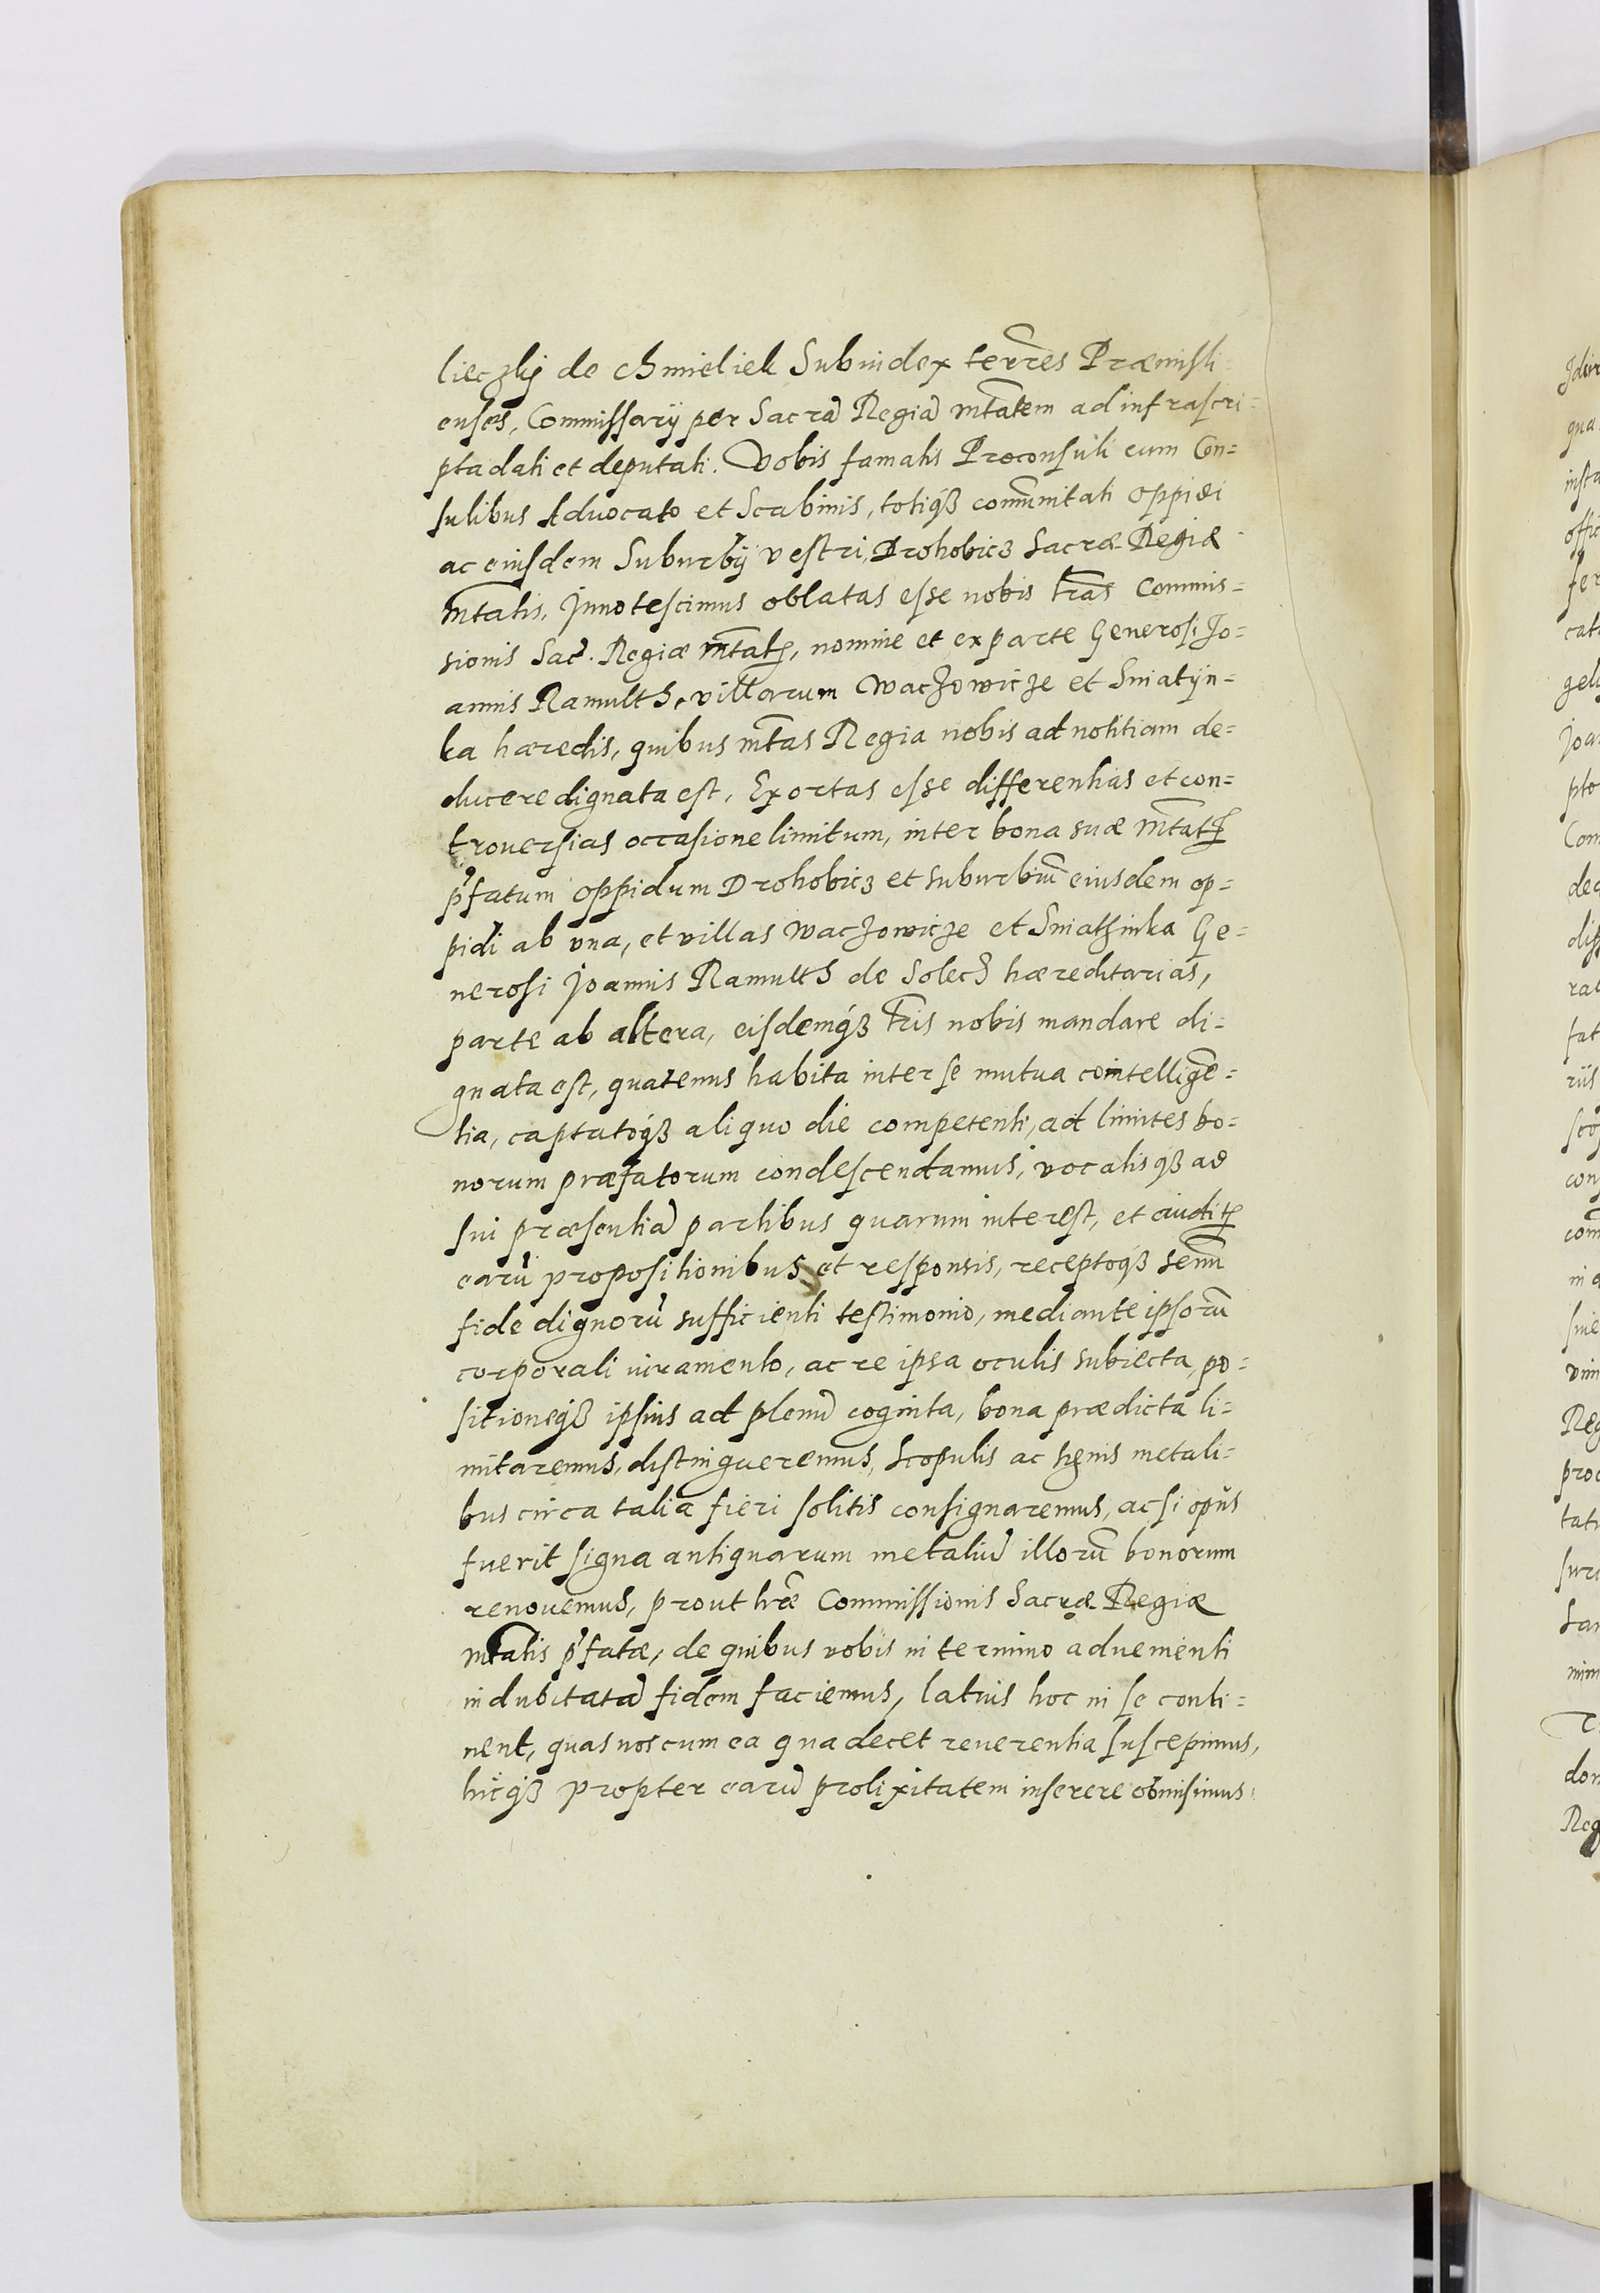 lieczky de Chmieliek Subiudex terres Præmisli-
enses, Commissarÿ per Sacrã Regiã mtatem ad infrascri-
pta dati et deputati. Vobis famatis Proconsuli cum Con-
sulibus Advocato et Scabinis, totiqз communitati oppidi
ac eiusdem Suburbÿ vestri Drohobicz Sacræ Regiæ
mtatis. Jnnotescimus oblatas esse nobis lras Commis-
sionis Sac. Regiæ mtatis, nomine et ex parte Generosi Jo-
annis Ramulth, villarum Waczowicze et Sniatÿn-
ka hæredis, quibus mtas Regia nobis ad notitiam de-
ducere dignata est, Exortas esse differentias et con-
trouersias occasione limitum, inter bona suæ mtatis
p̃fatum oppidum Drohobicz et suburbiũ eiusdem op-
pidi ab vna, et villas Waczowicze et Sniatzinka Ge-
nerosi Joannis Ramulth de Solech hæreditarias,
parte ab altera, eisdemqз lris nobis mandare di-
gnata est, quatenus habita inter se mutua cointelligẽ-
tia, captatoqз aliquo die competenti, ad limites bo-
norum præfatorum condescendamus, vocatisqз ad
sui præsentiã partibus quarum interest, et auditis
earũ propositionibus et responsis, receptoqз senũ
fide dignorũ sufficienti testimonio, mediante ipsorũ
corporali iuramento, ac re ipsa oculis subiecta, po-
sitioneqз ipsius ad plenũ cognita, bona prædicta li-
mitaremus, distingueremus, scopulis ac signis metali-
bus circa talia fieri solitis consignaremus, ac si opus
fuerit signa antiquarum metaliũ illorũ bonorum
renouemus, prout lræ Commissionis Sacræ Regiæ
mtatis p̃fatæ, de quibus vobis in termino aduenienti
indubitatã fidem faciemus, latius hoc in se conti-
nent, quas nos cum ea qua decet reuerentia suscepimus,
hicqз propter earũ prolixitatem inserere obmisimus.